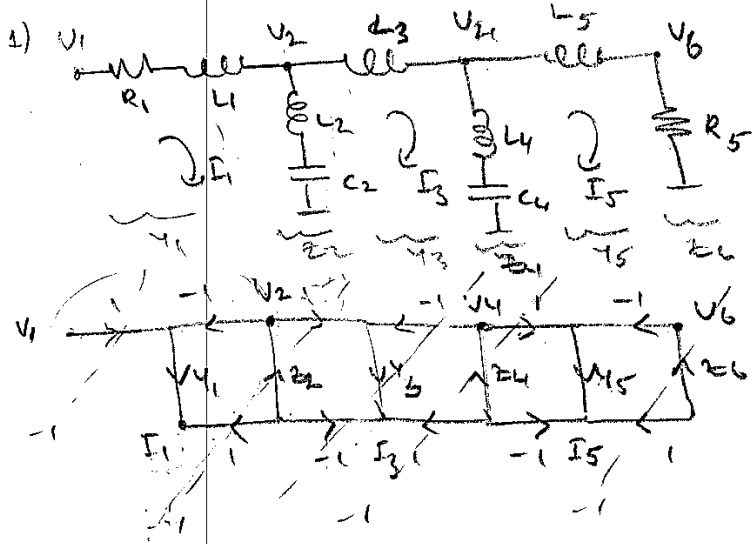 1) V1 V2 L3 V4 L5 V6
R1 L1 L2 L4 R5
I1 C2 I3 C4 I5
Y1 Z2 Y3 Z4 Y5 Z6
V1 -1 V2 1 -1 V4 1 -1 V6
Y1 Z2 Y3 Z4 Y5 Z6
-1 I1 1 -1 I3 1 -1 I5 1
-1 -1 -1